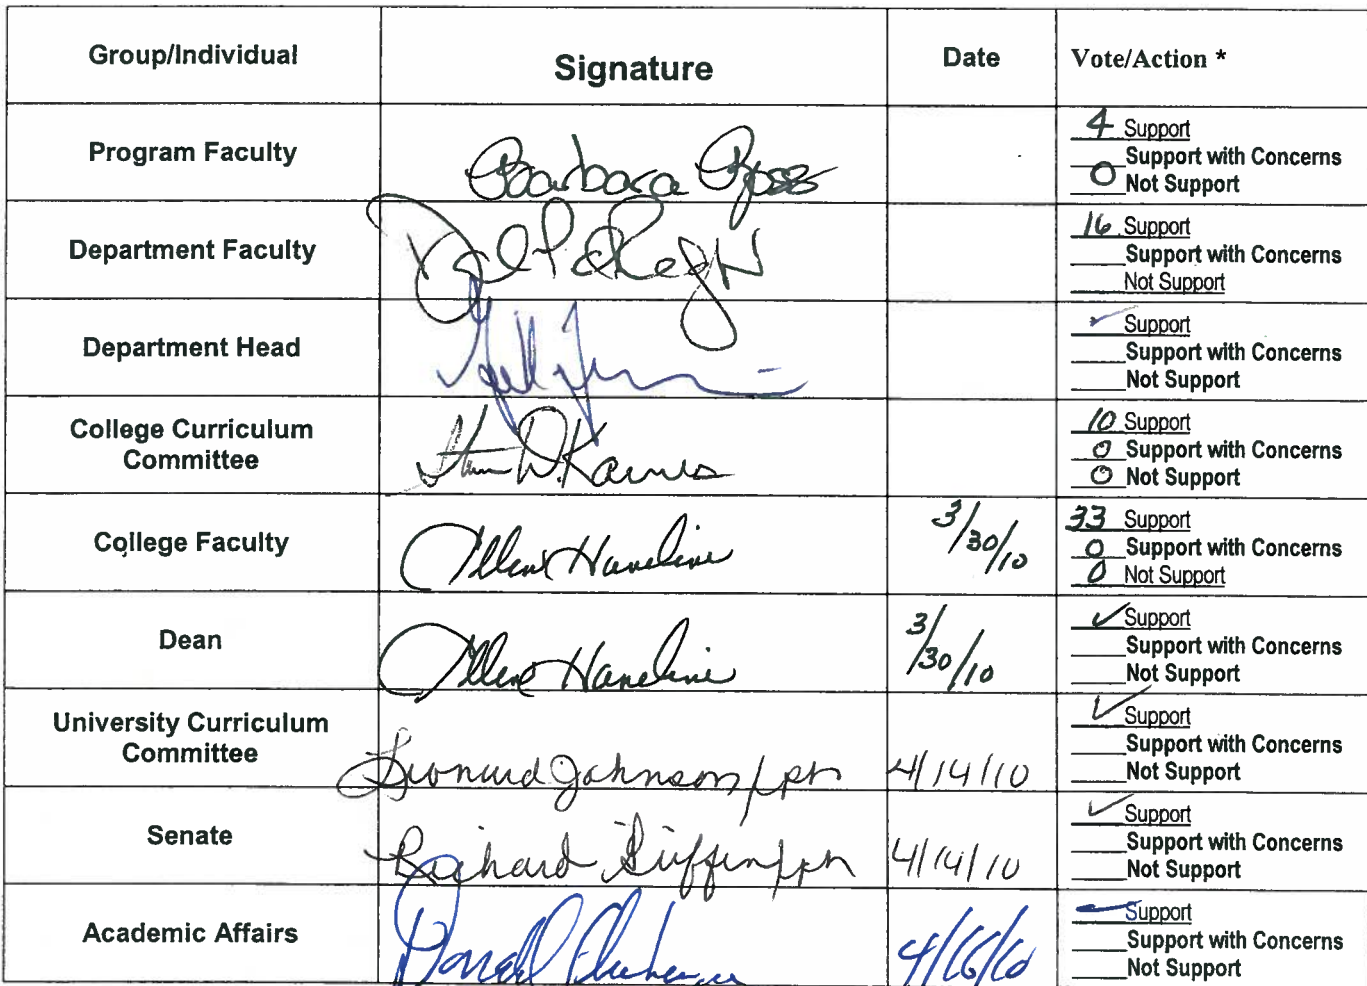 Group/Individual Signature Date Vote/Action *
Program Faculty Barbara Ross
4 Support
___Support with Concerns
0 Not Support
Department Faculty
16 Support
___Support with Concerns
___Not Support
Department Head
✓ Support
___Support with Concerns
___Not Support
College Curriculum
Committee
Karnes
10 Support
0 Support with Concerns
0 Not Support
College Faculty Ellen Haneline 3/30/10
33 Support
0 Support with Concerns
0 Not Support
Dean Ellen Haneline 3/30/10
✓ Support
___Support with Concerns
___Not Support
University Curriculum
Committee
Leonard Johnson/ 4/14/10
✓ Support
___Support with Concerns
___Not Support
Senate Richard Griffin/ 4/14/10
✓ Support
___Support with Concerns
___Not Support
Academic Affairs 4/16/10
✓ Support
___Support with Concerns
___Not Support